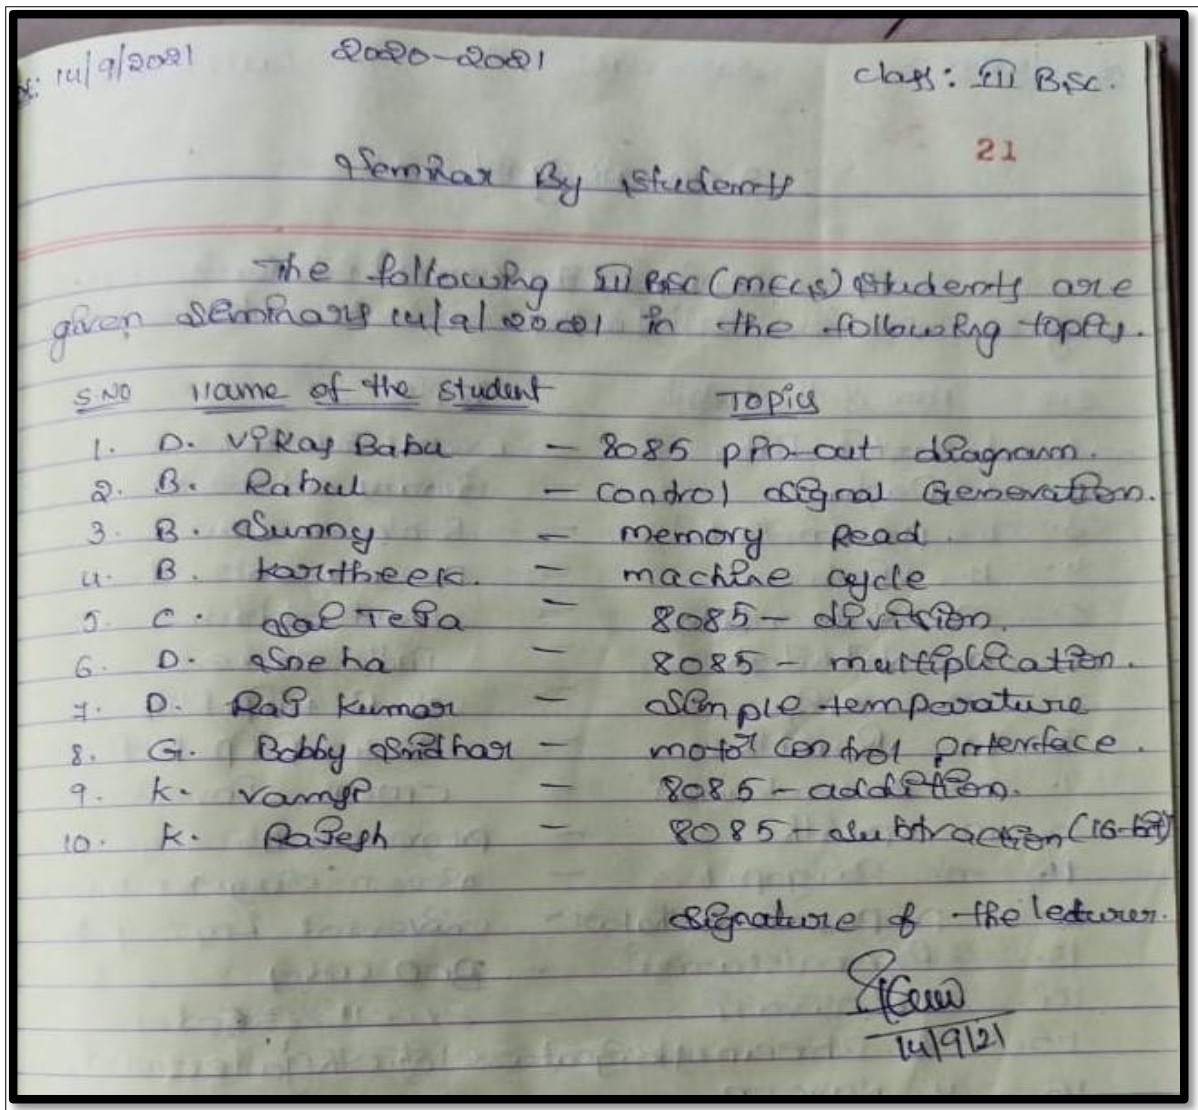 14/9/2021 2020-2021 class: III B.Sc.
21
Seminar By Students
The following III BSC (MECs) Students are
given seminars 14/9/2021 in the following topics.
S.NO Name of the Student Topics
1. D. Vikas Babu - 8085 pin-out diagram.
2. B. Rahul - control signal Generation.
3. B. Sunny - memory Read.
4. B. Kartheek. - machine cycle
5. C. Sai Teja - 8085 - division.
6. D. Sneha - 8085 - multiplication.
7. D. Raj Kumar - Simple temparature
8. G. Bobby Sridhar - motor control interface.
9. K. Vamsi - 8085 - addition.
10. K. Rajesh - 8085 - subtraction (16-bit)
Signature of the lecturer.
14/9/21